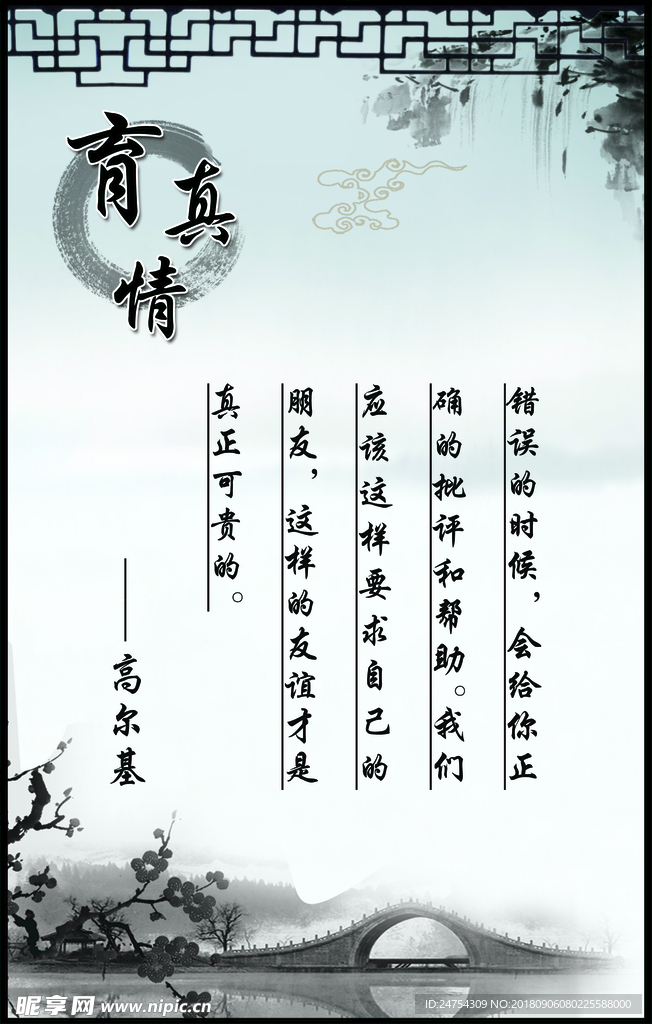 育真情
错误的时候，会给你正
确的批评和帮助。我们
应该这样要求自己的
朋友，这样的友谊才是
真正可贵的。
——高尔基
昵享网 www.nipic.cn
ID:24754309 NO:20180906080225588000